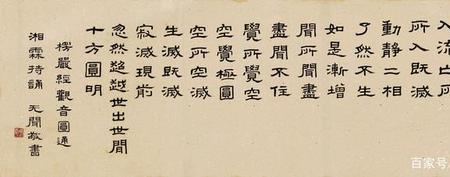 入流亡所
所入既滅
動靜二相
了然不生
如是漸增
聞所聞盡
盡聞不住
覺所覺空
空覺極圓
空所空滅
生滅既滅
寂滅現前
忽然超越世出世間
十方圓明
楞嚴經觀音圓通
湘霖持誦 聞敬書
百家号